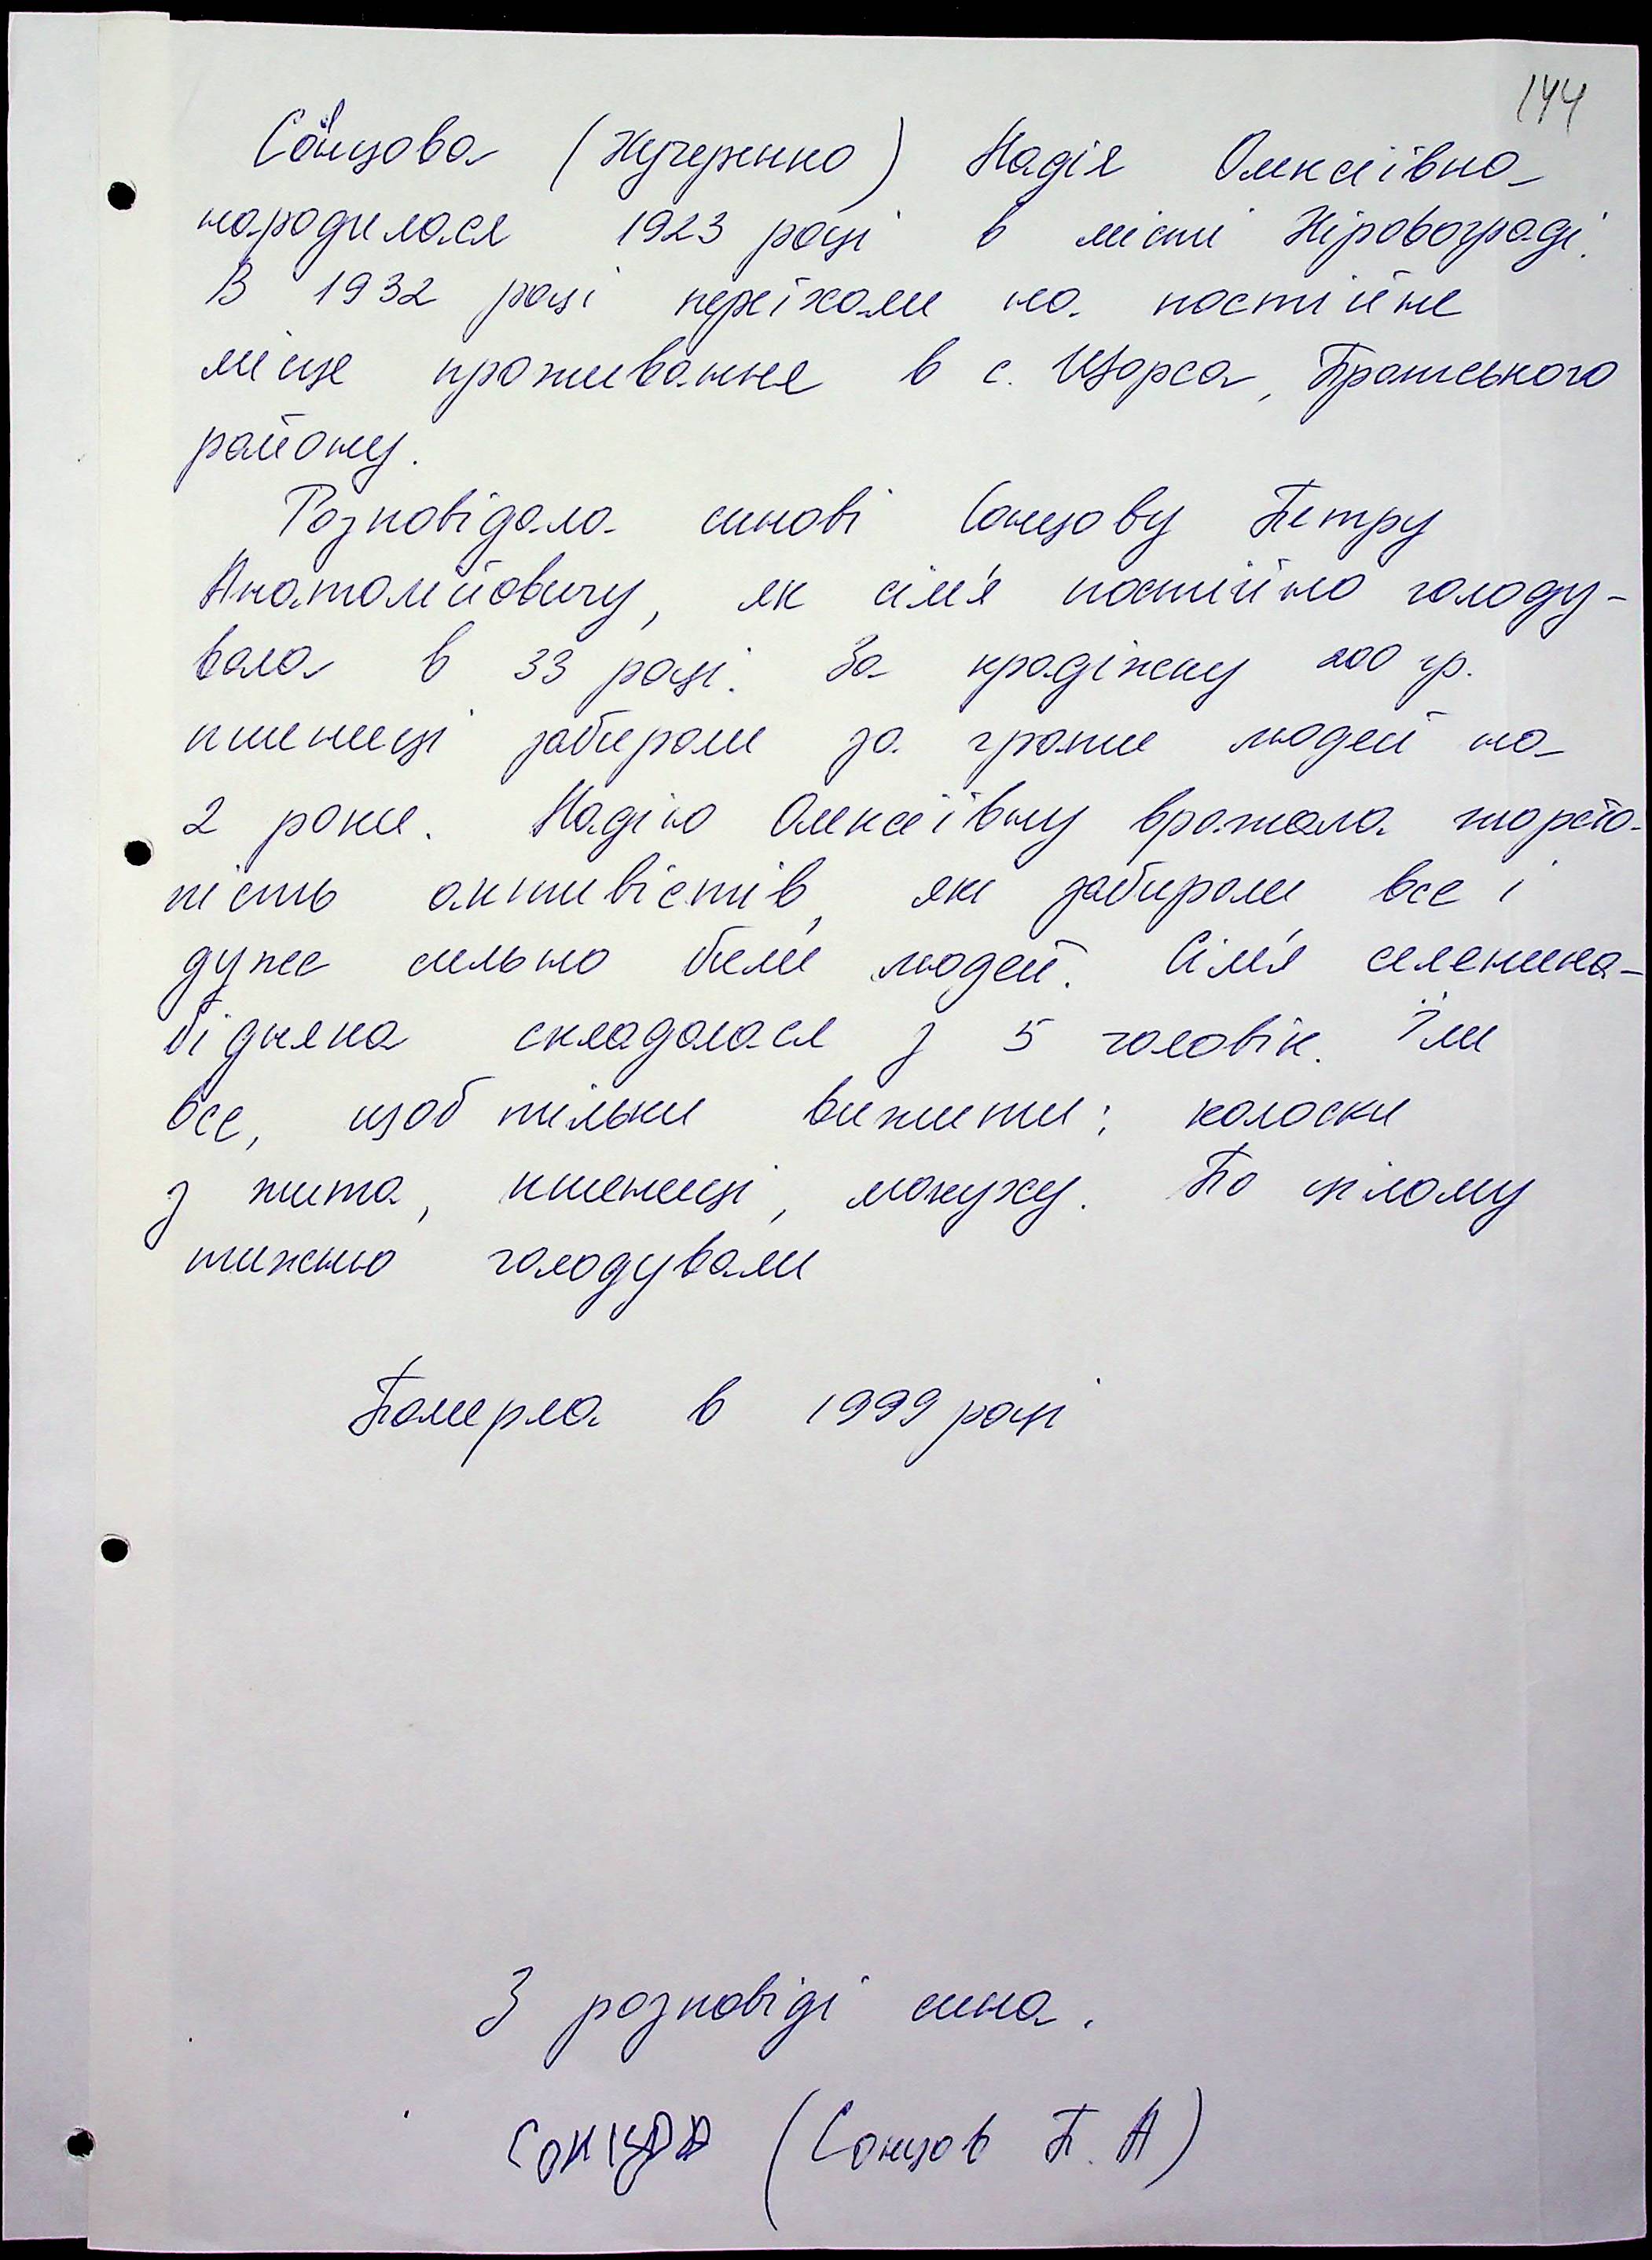 144
Сонцова (Кучеренко) Надія Олексіївна
народилася 1923 році в місті Кіровограді.
В 1932 році переїхали на постійне
місце проживання в с. Щорса, Братського
району.
Розповідала синові Сонцову Петру
Анатолійовичу, як сім'я постійно голоду-
вала в 33 році. За крадіжку 200 гр.
пшениці забирали за грати людей на
2 роки. Надію Олексіївну вражала жорсто-
кість активістів, які забирали все і
дуже сильно били людей. Сім'я селянина-
бідняка складалася з 5 чоловік. Їли
все, щоб тільки вижити: колоски
з жита, пшениці, макуху. По цілому
тижню голодували
Померла в 1999 році
З розповіді сина.
Сонцов (Сонцов П. А)